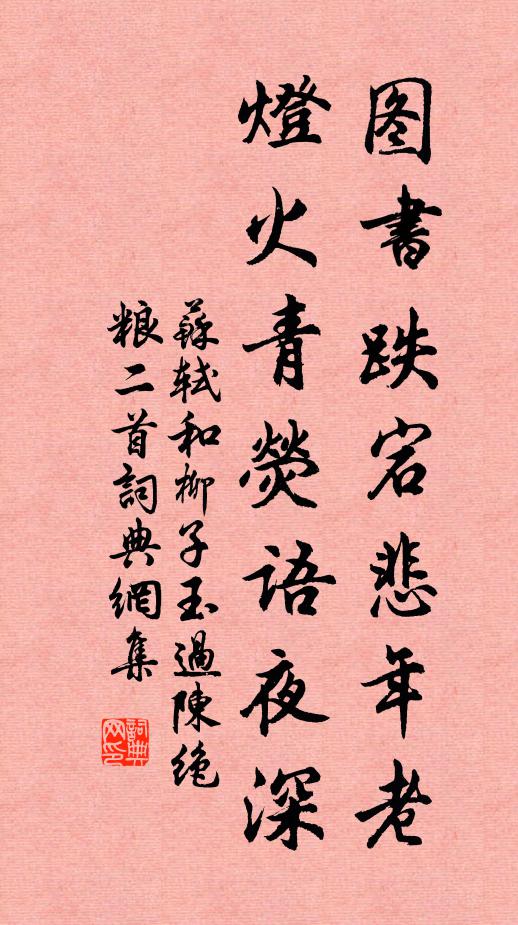 图書跌宕悲年老
燈火青熒語夜深
蘇軾和柳子玉過陳絶
粮二首詞典網集
詞典網印